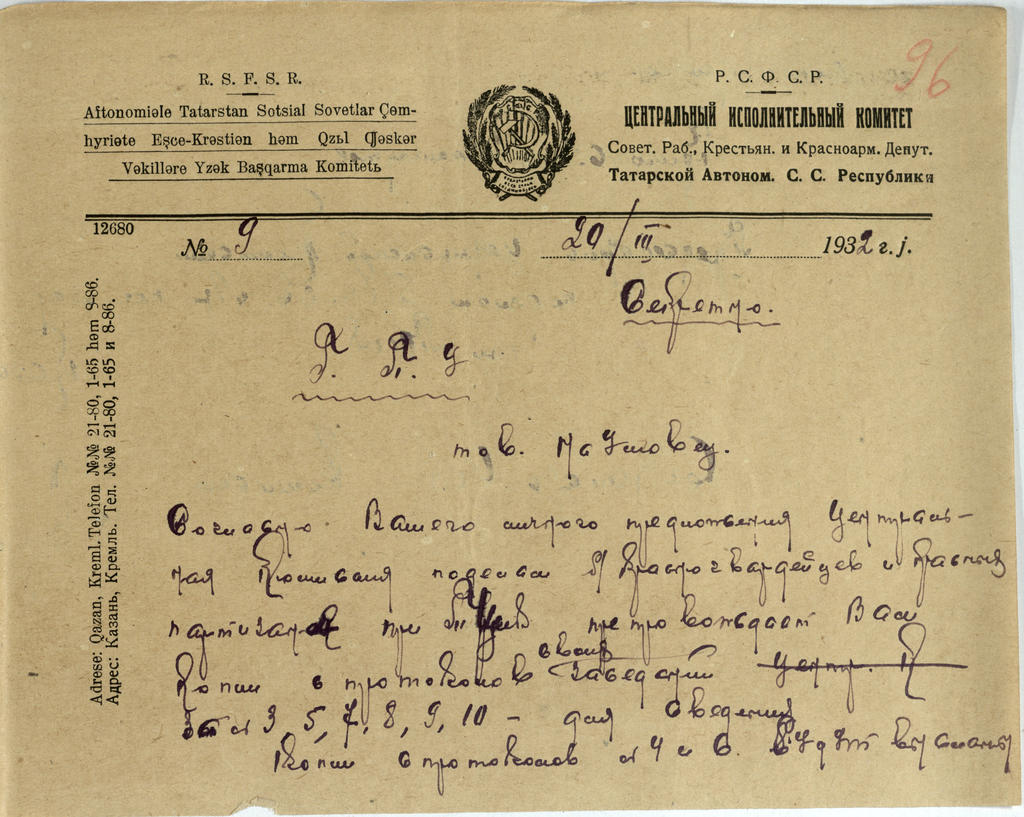 96
R. S. F. S. R.
Aftonomiəle Tatarstan Sotsial Sovetlar Çөm-
hyriəte Eşce-Krəstien həm Qzьl Ƣəskər
Vəkilləre Yzək Başqarma Komitetь
Р. С. Ф. С. Р.
ЦЕНТРАЛЬНЫЙ ИСПОЛНИТЕЛЬНЫЙ КОМИТЕТ
Совет. Раб., Крестьян. и Красноарм. Депут.
Татарской Автоном. С. С. Республики
12680
№ 9
20/III 1932 г. j.
Adrese: Qazan, Kreml. Teleion №№ 21-80, 1-65 həm 8-86.
Адрес: Казань, Кремль. Тел. №№ 21-80, 1-65 и 8-86.
Секретно.
тов.
Согласно Вашего личного предложения Централь-
ная Комиссия по делам б/ Красногвардейцев и Красных
партизан при ТЦИК'е препровождает Вам
Копии с протоколов своих заседаний Центр. К
за № 3, 5, 7, 8, 9, 10 - для сведения
Копии с протоколов № 4 и 6. будут высланы